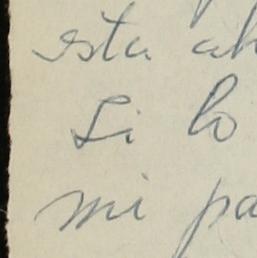 esta ah
Si lo
mi pa